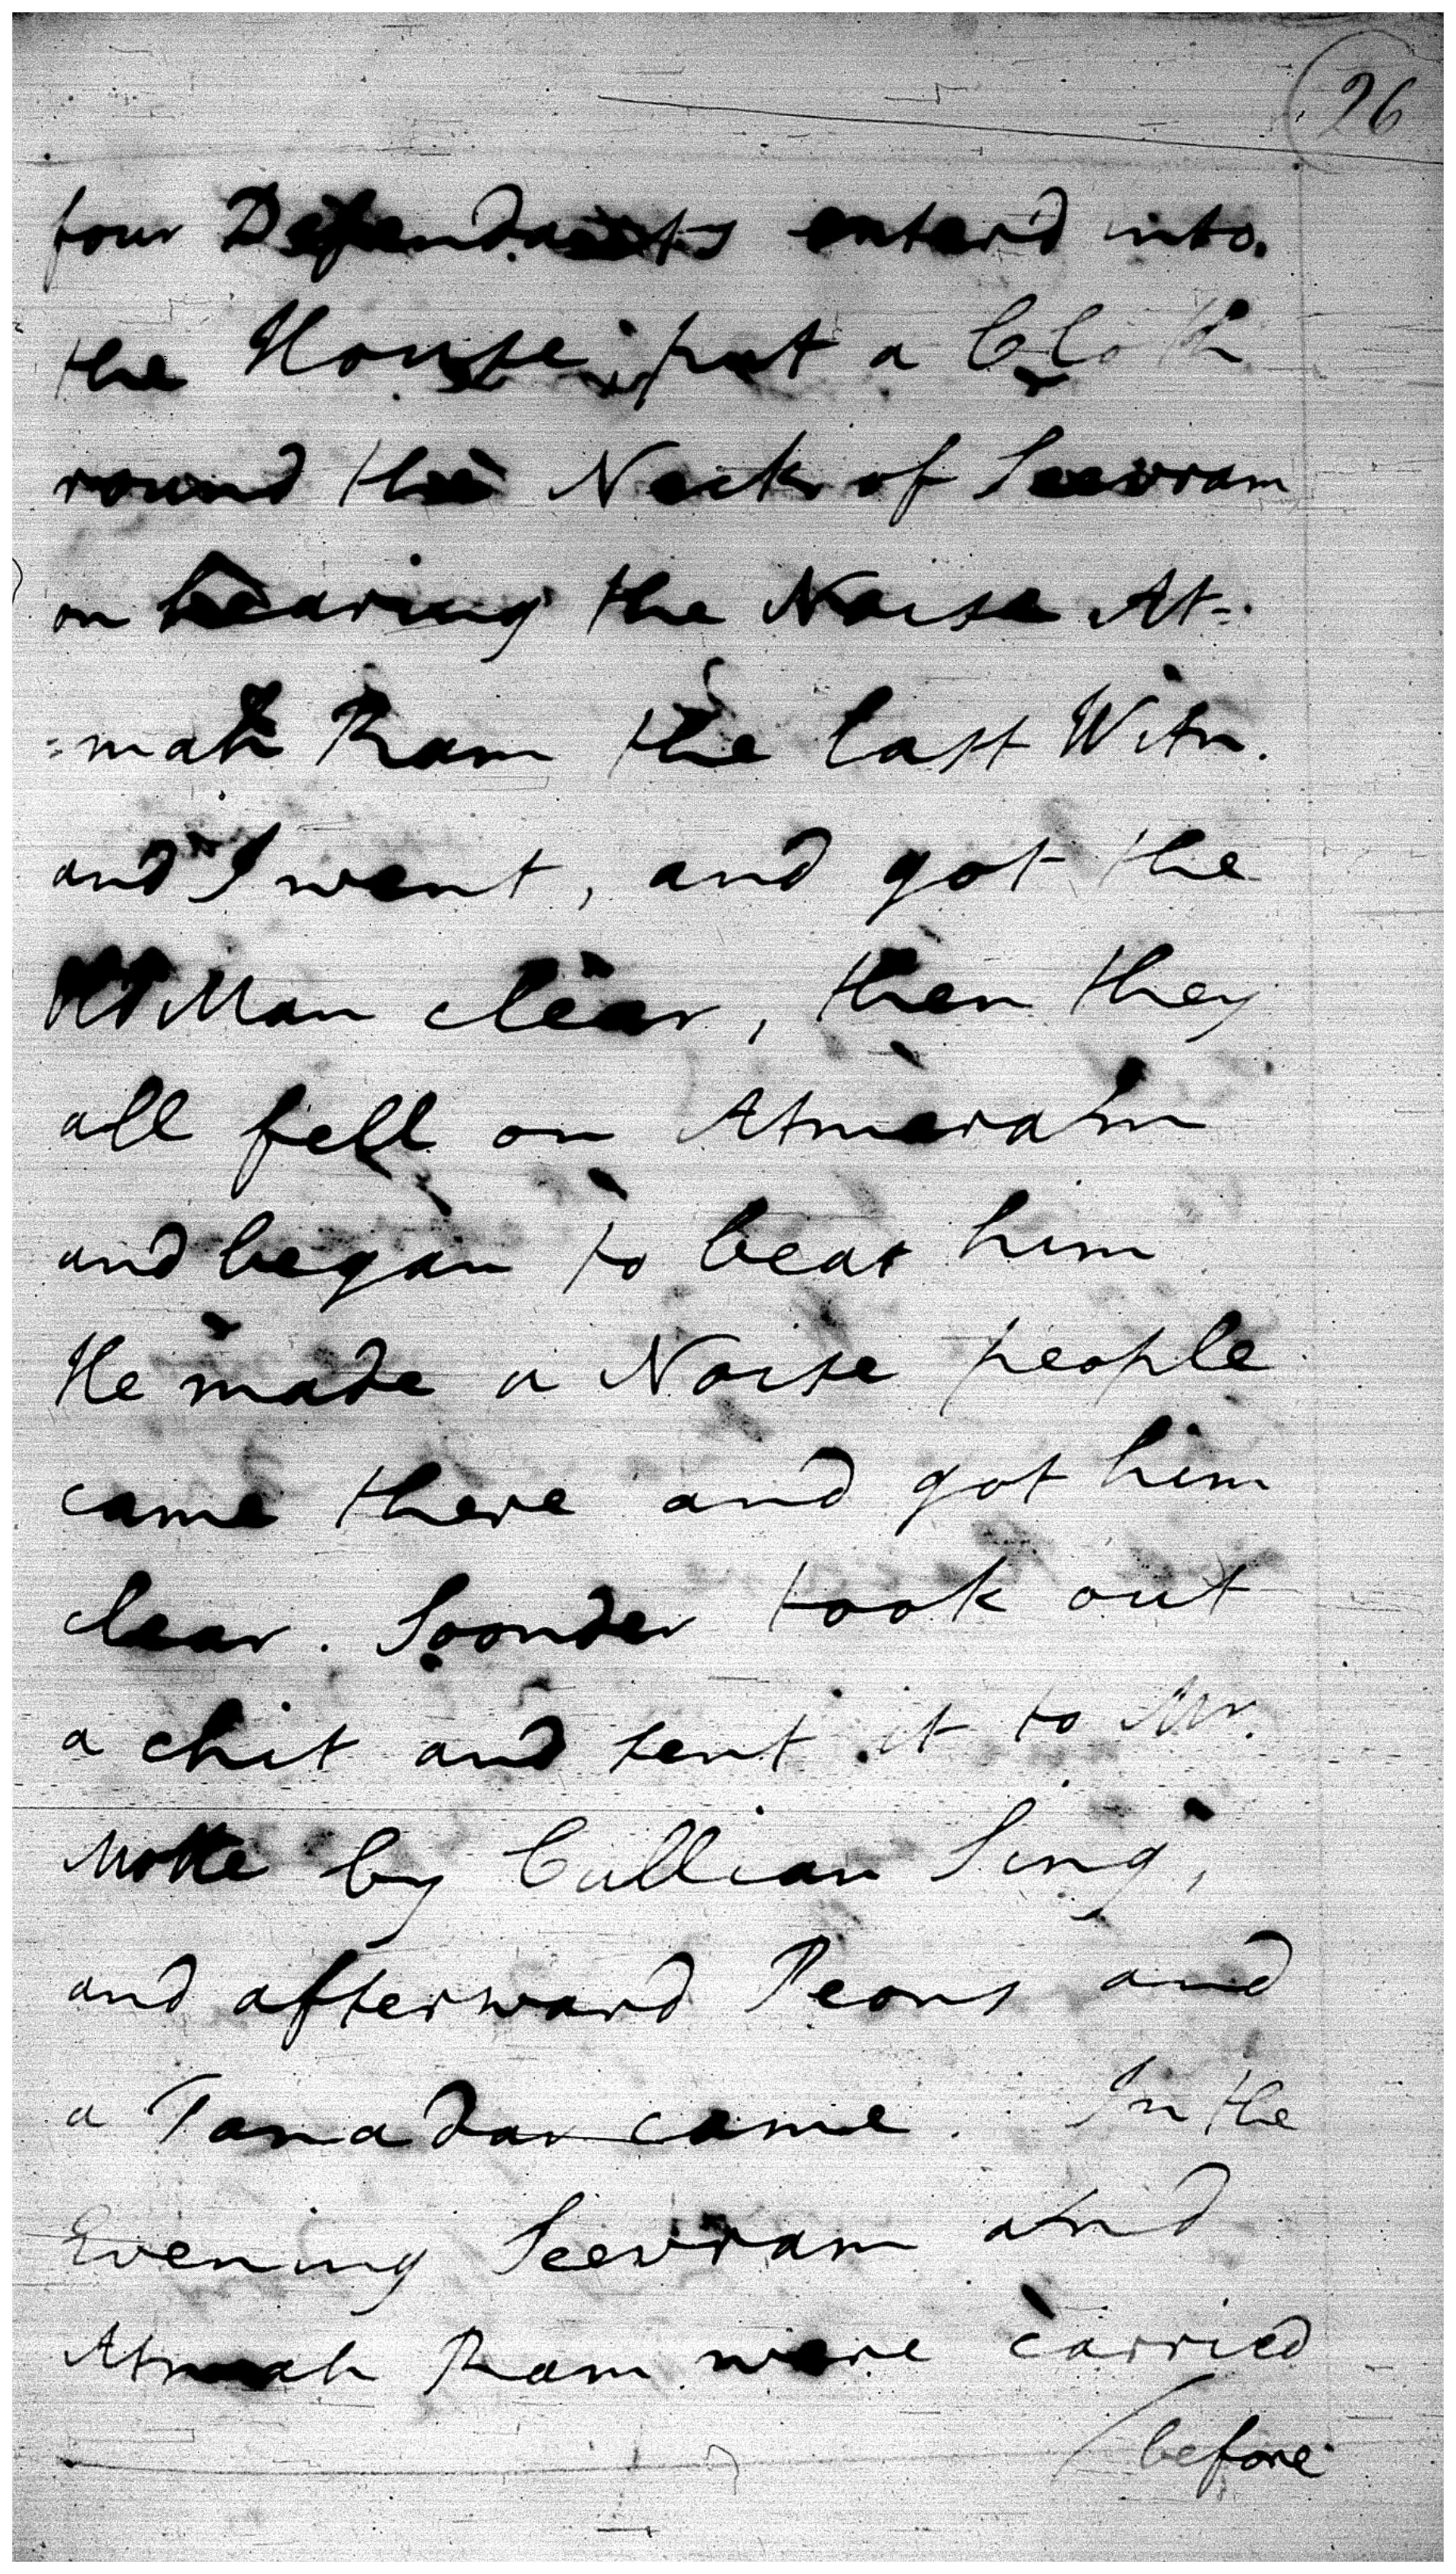 26
four Defendants enterd into
the House, put a Cloth
round the Neck of Seevram
on hearing the Noise At=
=mah Ram the last Witn.
and I went, and got the
old Man clear, then they
all fell on Atmeram
and began to beat him
He made a Noise people
came there and got him
clear. Soonder took out
a chit and sent it to Mr.
Motte by Cullian Sing,
and afterward Peons and
a Tanadar came. In the
Evening Seevram and
Atmah Ram were carried
before